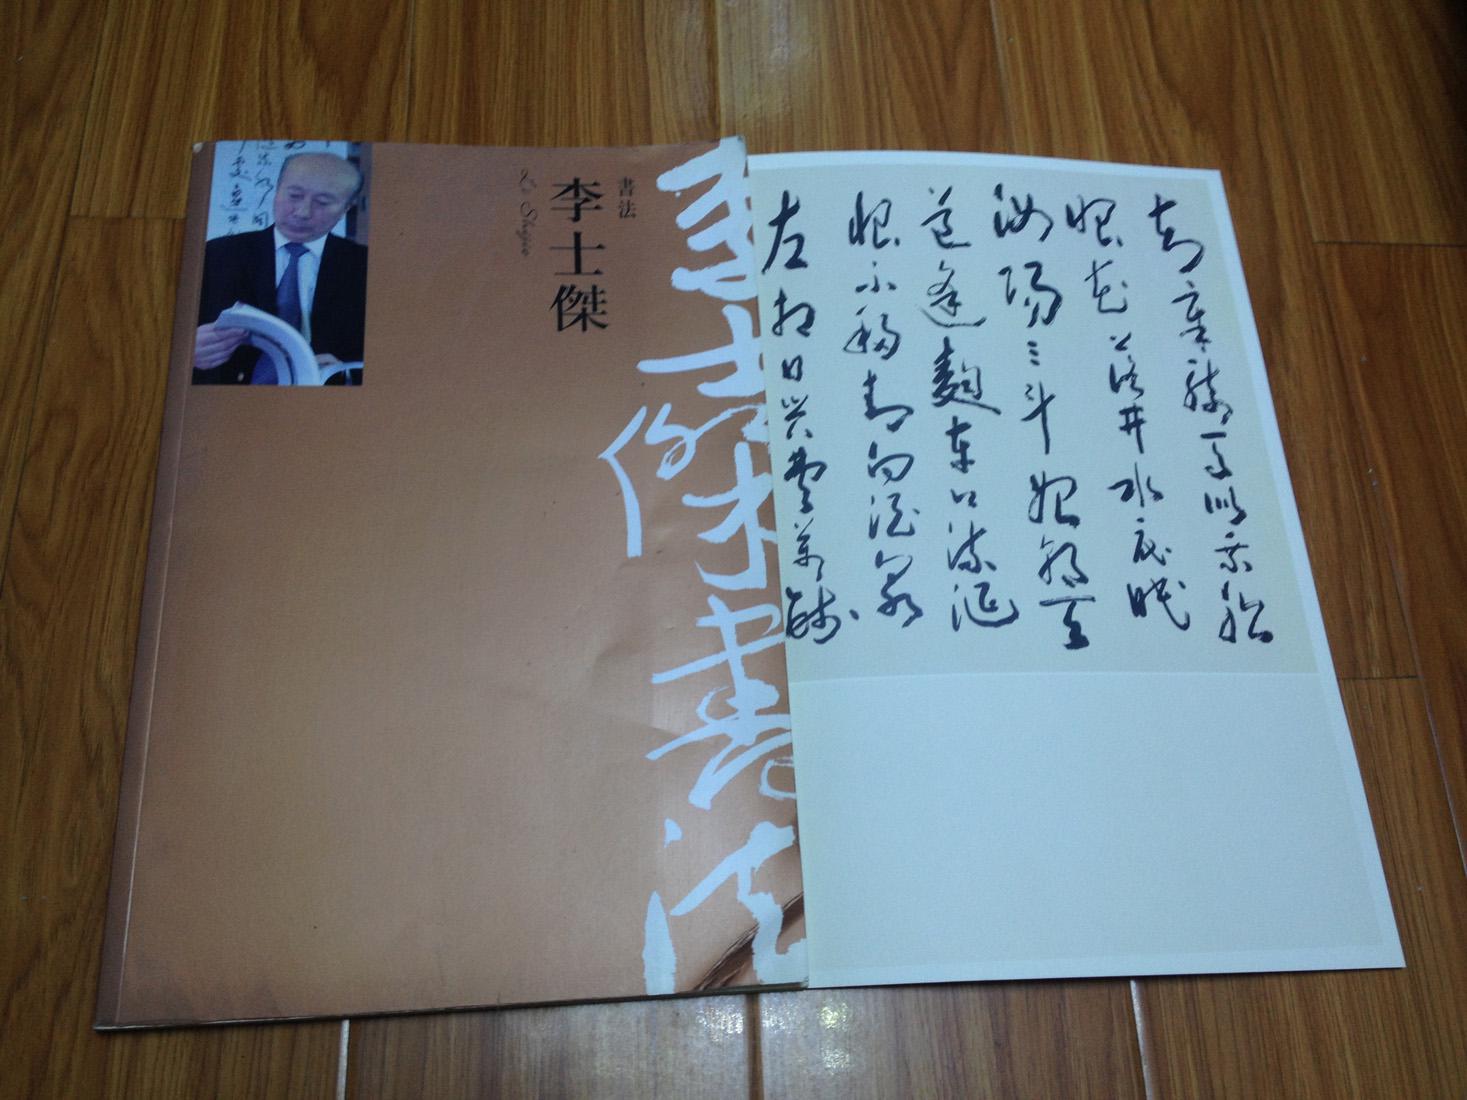 書法
李士傑
Li Shijie
李士傑書法
知章騎馬似乘船
眼花落井水底眠
汝陽三斗始朝天
道逢麴車口流涎
恨不移封向酒泉
左相日興費萬錢